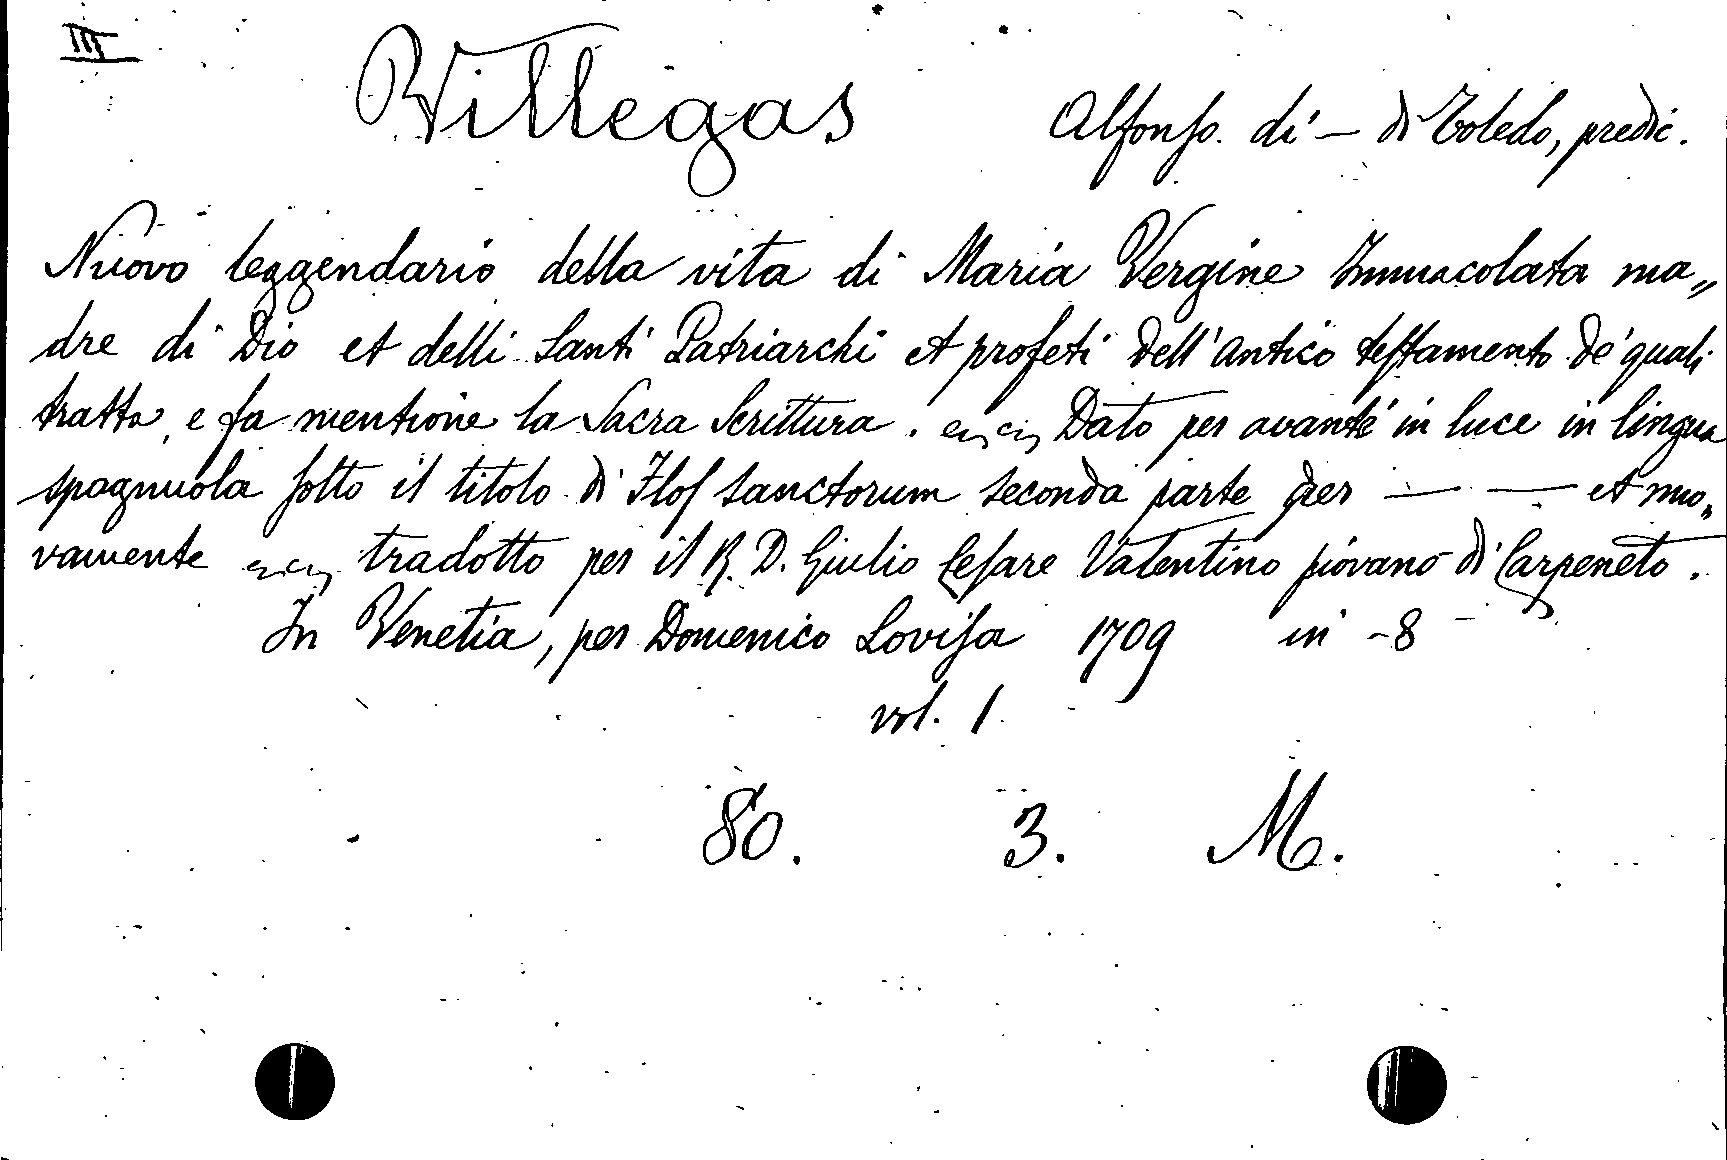 III
Villegas Alfonso. di — di Toledo, predic.
Nuovo leggendario della vita di Maria Vergine Immacolata ma„
dre di Dio et delli Santi Patriarchi et profeti dell'antico testamento de' quali
tratta, e fa mentione la Sacra Scrittura. Dato per avanti in luce in lingua
spagnuola sotto il titolo di Flos Sanctorum seconda parte per — — et nuo„
vamente tradotto per il R. D. Giulio Cesare Valentino piovano di Carpeneto.
In Venetia, per Domenico Lovisa 1709 in -8
vol. 1
80. 3. M.